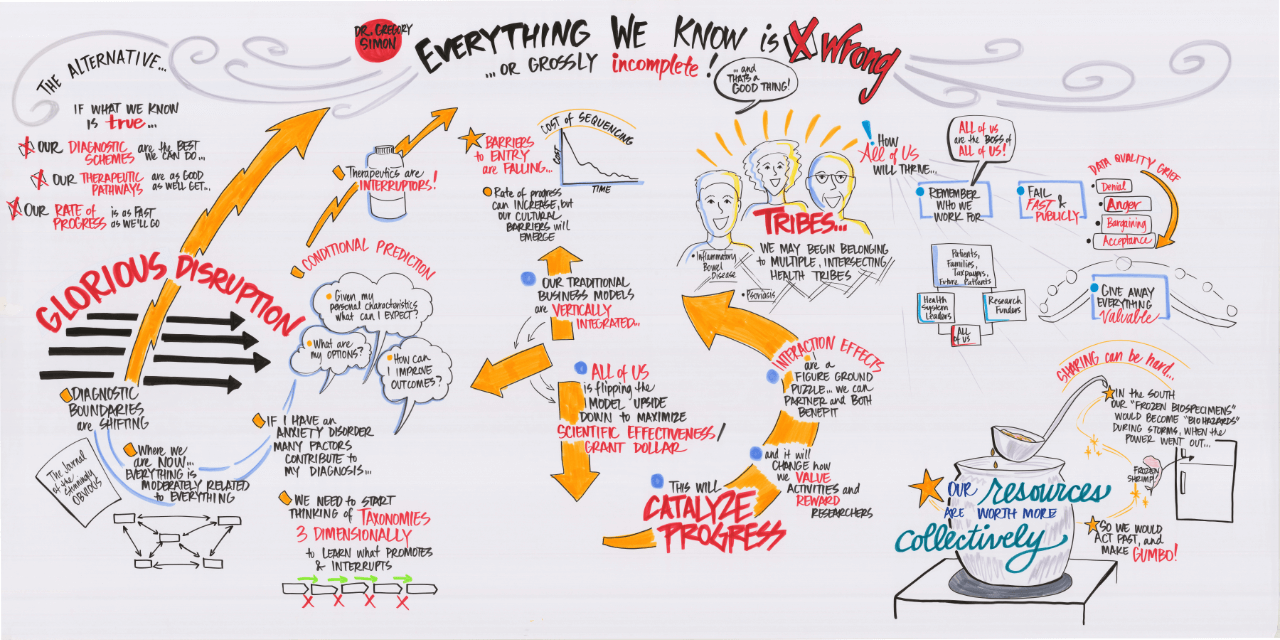 DR. GREGORY
SIMON
EVERYTHING WE KNOW is X Wrong
...OR GROSSLY incomplete!
...and
THAT'S a
GOOD THING!
THE ALTERNATIVE...
IF WHAT WE KNOW
IS true...
OUR DIAGNOSTIC
SCHEMES are the BEST
WE CAN DO...
OUR THERAPEUTIC
PATHWAYS are as GOOD
as WE'LL GET...
OUR RATE of
PROGRESS is as FAST
as WE'LL GO
GLORIOUS DISRUPTION
DIAGNOSTIC
BOUNDARIES
are SHIFTING
Where we
are NOW...
EVERYTHING is
MODERATELY RELATED
to EVERYTHING
The Journal
of the
Stunningly
OBVIOUS
Therapeutics are
INTERRUPTORS!
CONDITIONAL PREDICTION
Given my
personal characteristics
what can I EXPECT?
What are
my OPTIONS?
How can
I IMPROVE
OUTCOMES?
IF I HAVE an
ANXIETY DISORDER
MANY FACTORS
CONTRIBUTE to
MY DIAGNOSIS...
WE NEED to START
THINKING of TAXONOMIES
3 DIMENSIONALLY
to LEARN what PROMOTES
& INTERRUPTS
BARRIERS
to ENTRY
are FALLING...
COST of SEQUENCING
COST
TIME
Rate of progress
can INCREASE, but
our CULTURAL
BARRIERS will
EMERGE
OUR TRADITIONAL
BUSINESS MODELS
are VERTICALLY
INTEGRATED...
ALL of US
is flipping the
MODEL UPSIDE
DOWN to MAXIMIZE
SCIENTIFIC EFFECTIVENESS/
GRANT DOLLAR
THIS WILL
CATALYZE
PROGRESS
and it will
CHANGE how
we VALUE
ACTIVITIES and
REWARD
RESEARCHERS
INTERACTION EFFECTS
are a
FIGURE GROUND
PUZZLE... we can
PARTNER and BOTH
BENEFIT
TRIBES...
WE MAY BEGIN BELONGING
to MULTIPLE, INTERSECTING
HEALTH TRIBES
Inflammatory
Bowel
Disease
Psoriasis
! How
All of Us
WILL THRIVE...
ALL of US
are the BOSS of
ALL of US!
REMEMBER
WHO WE
WORK FOR
FAIL
FAST &
PUBLICLY
DATA QUALITY GRIEF
Denial
Anger
Bargaining
Acceptance
Patients,
Families,
Taxpayers,
Future Patients
Health
System
Leaders
Research
Funders
ALL
of US
GIVE AWAY
EVERYTHING
Valuable
SHARING can be hard...
IN the SOUTH
OUR "FROZEN BIOSPECIMENS"
WOULD BECOME "BIOHAZARDS"
DURING STORMS, WHEN the
POWER WENT OUT...
FROZEN
SHRIMP!
SO WE WOULD
ACT FAST, and
MAKE GUMBO!
OUR resources
ARE WORTH MORE
collectively